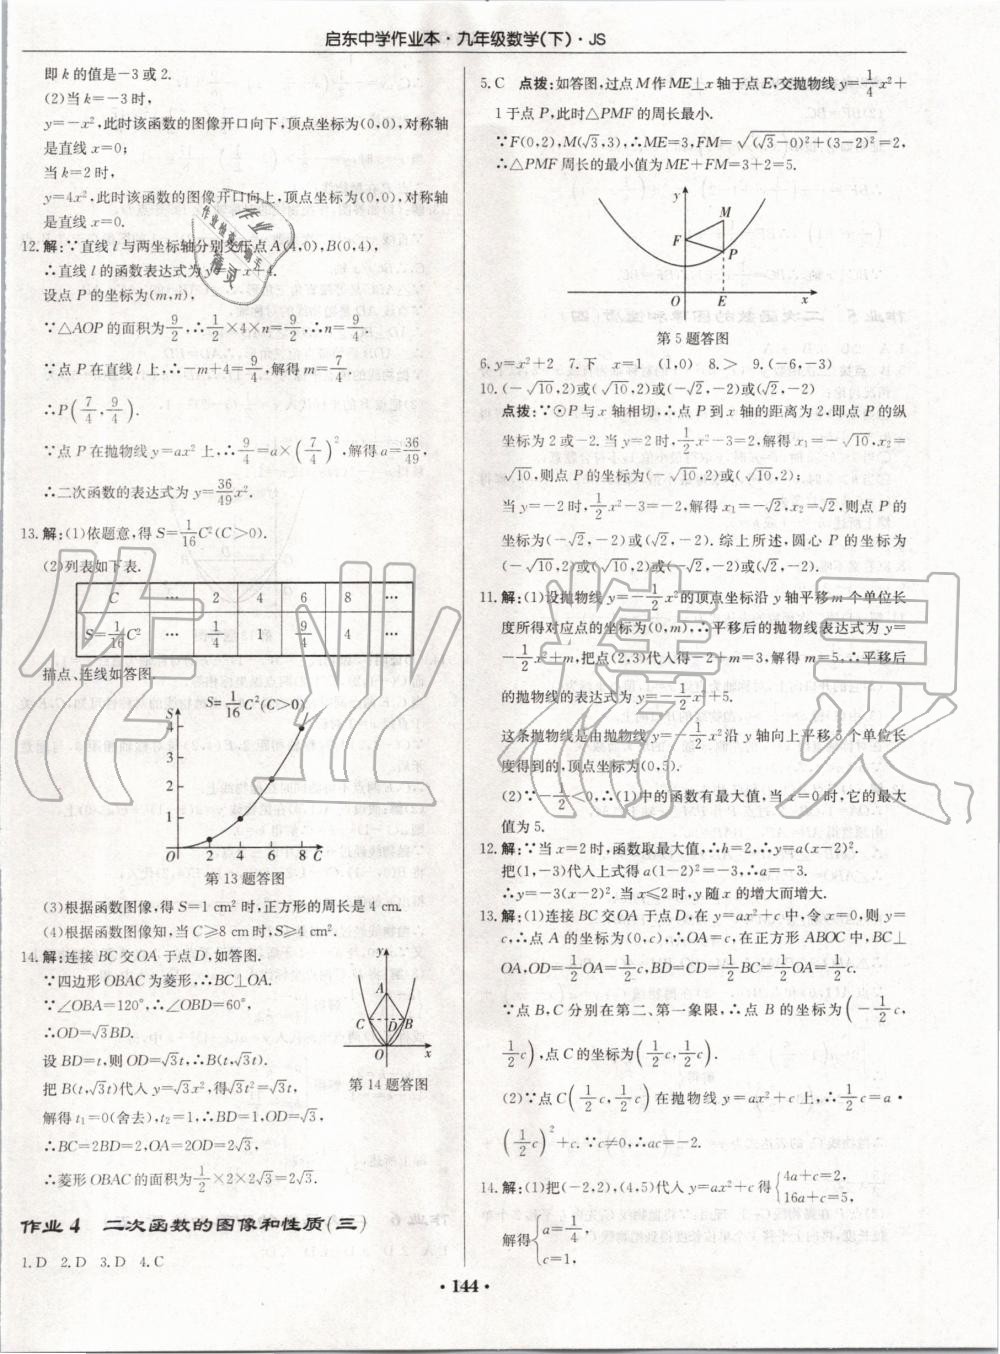 启东中学作业本·九年级数学(下)·JS
即k的值是-3或2.
(2)当k=-3时,
y=-x²,此时该函数的图像开口向下,顶点坐标为(0,0),对称轴
是直线x=0;
当k=2时,
y=4x²,此时该函数的图像开口向上,顶点坐标为(0,0),对称轴
是直线x=0.
12.解:∵直线l与两坐标轴分别交于点A(4,0),B(0,4),
∴直线l的函数表达式为y=-x+4.
设点P的坐标为(m,n),
∵△AOP的面积为9/2,∴1/2×4×n=9/2,∴n=9/4.
∵点P在直线l上,∴-m+4=9/4,解得m=7/4,
∴P(7/4,9/4).
∵点P在抛物线y=ax²上,∴9/4=a×(7/4)²,解得a=36/49,
∴二次函数的表达式为y=36/49x².
13.解:(1)依题意,得S=1/16C²(C>0).
(2)列表如下表.
C … 2 4 6 8 …
S=1/16C² … 1/4 1 9/4 4 …
描点、连线如答图.
S=1/16C²(C>0)
S
4
3
2
1
O 2 4 6 8 C
第13题答图
(3)根据函数图像,得S=1 cm²时,正方形的周长是4 cm.
(4)根据函数图像知,当C≥8 cm时,S≥4 cm².
14.解:连接BC交OA于点D,如答图.
∵四边形OBAC为菱形,∴BC⊥OA.
∵∠OBA=120°,∴∠OBD=60°,
∴OD=√3BD.
设BD=t,则OD=√3t,∴B(t,√3t).
把B(t,√3t)代入y=√3x²,得√3t²=√3t,
解得t₁=0(舍去),t₂=1,∴BD=1,OD=√3,
∴BC=2BD=2,OA=2OD=2√3,
∴菱形OBAC的面积为1/2×2×2√3=2√3.
y
A
C D B
O x
第14题答图
作业4 二次函数的图像和性质(三)
1.D 2.D 3.D 4.C
5.C 点拨:如答图,过点M作ME⊥x轴于点E,交抛物线y=1/4x²+
1于点P,此时△PMF的周长最小.
∵F(0,2),M(√3,3),∴ME=3,FM=√((√3-0)²+(3-2)²)=2,
∴△PMF周长的最小值为ME+FM=3+2=5.
y
M
F
P
O E x
第5题答图
6.y=x²+2 7.下 x=1 (1,0) 8.> 9.(-6,-3)
10.(-√10,2)或(√10,2)或(-√2,-2)或(√2,-2)
点拨:∵⊙P与x轴相切,∴点P到x轴的距离为2,即点P的纵
坐标为2或-2.当y=2时,1/2x²-3=2,解得x₁=-√10,x₂=
√10,则点P的坐标为(-√10,2)或(√10,2);
当y=-2时,1/2x²-3=-2,解得x₁=-√2,x₂=√2,则点P的
坐标为(-√2,-2)或(√2,-2).综上所述,圆心P的坐标为
(-√10,2)或(√10,2)或(-√2,-2)或(√2,-2).
11.解:(1)设抛物线y=-1/2x²的顶点坐标沿y轴平移m个单位长
度所得对应点的坐标为(0,m),∴平移后的抛物线表达式为y=
-1/2x²+m,把点(2,3)代入得-2+m=3,解得m=5.∴平移后
的抛物线的表达式为y=-1/2x²+5.
这条抛物线是由抛物线y=-1/2x²沿y轴向上平移5个单位长
度得到的,顶点坐标为(0,5).
(2)∵-1/2<0,∴(1)中的函数有最大值,当x=0时,它的最大
值为5.
12.解:∵当x=2时,函数取最大值,∴h=2,∴y=a(x-2)².
把(1,-3)代入上式得a(1-2)²=-3,∴a=-3.
∴y=-3(x-2)².当x≤2时,y随x的增大而增大.
13.解:(1)连接BC交OA于点D,在y=ax²+c中,令x=0,则y=
c,∴点A的坐标为(0,c),∴OA=c,在正方形ABOC中,BC⊥
OA,OD=1/2OA=1/2c,BD=CD=1/2BC=1/2OA=1/2c.
∵点B,C分别在第二、第一象限,∴点B的坐标为(-1/2c,
1/2c),点C的坐标为(1/2c,1/2c).
(2)∵点C(1/2c,1/2c)在抛物线y=ax²+c上,∴1/2c=a·
(1/2c)²+c.∵c≠0,∴ac=-2.
14.解:(1)把(-2,2),(4,5)代入y=ax²+c得{4a+c=2,
16a+c=5,
解得{a=1/4,
c=1,
·144·
作业精灵